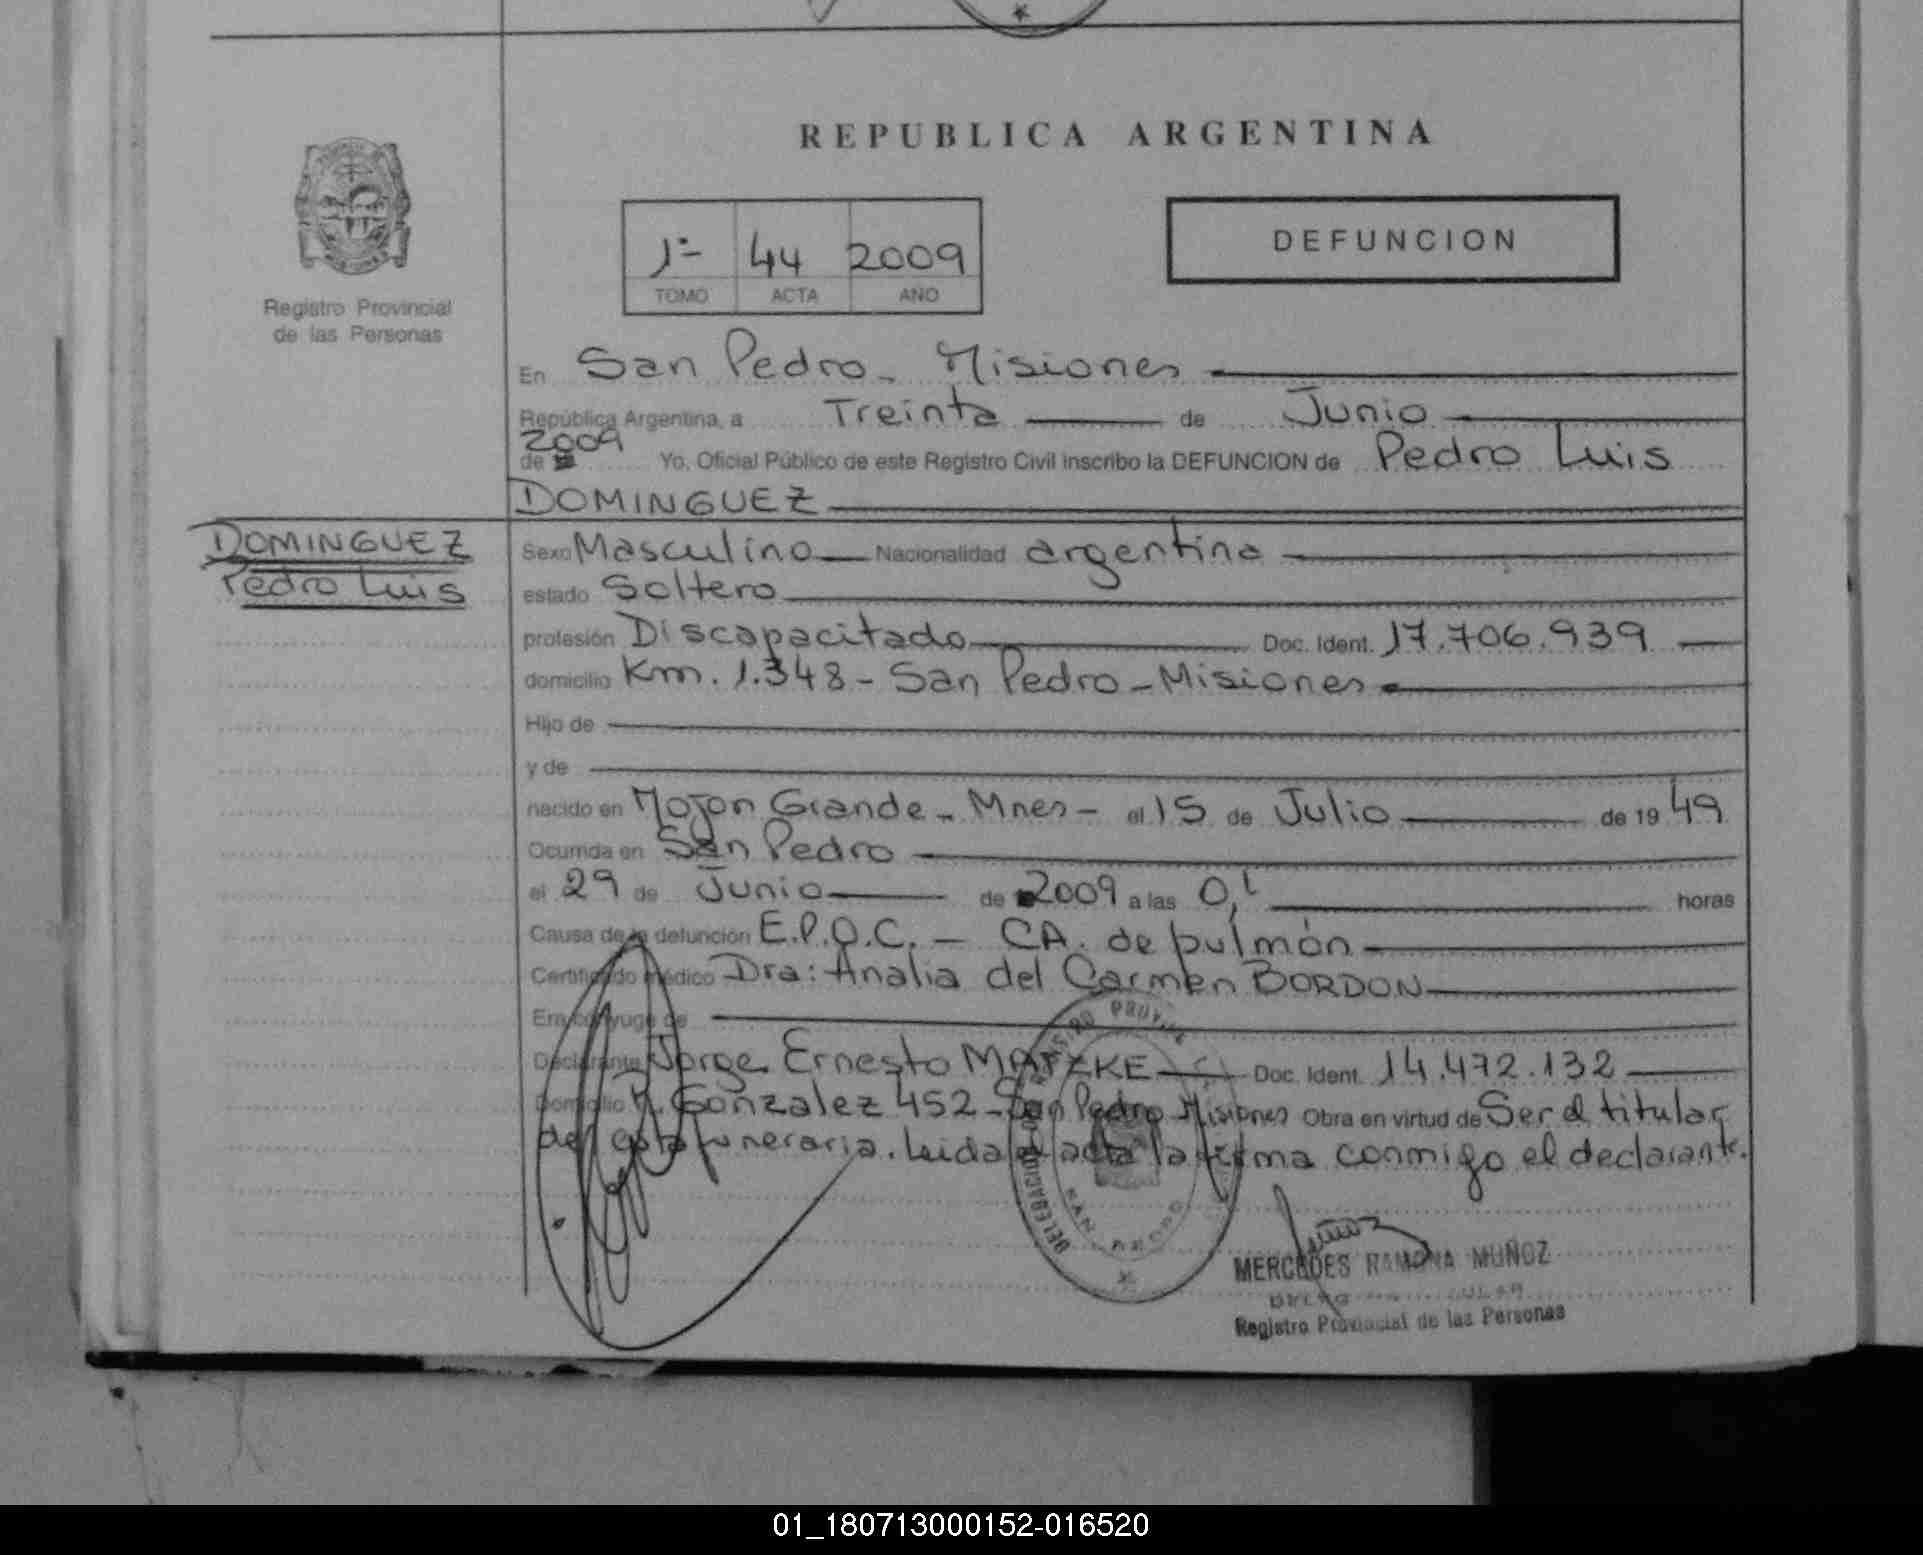 REPUBLICA ARGENTINA
1º 44 2009
TOMO ACTA AÑO
DEFUNCION
Registro Provincial
de las Personas
En San Pedro - Misiones
República Argentina, a Treinta de Junio
de 2009 Yo, Oficial Público de este Registro Civil inscribo la DEFUNCION de Pedro Luis
DOMINGUEZ
DOMINGUEZ
Pedro Luis
Sexo Masculino Nacionalidad argentina
estado Soltero
profesión Discapacitado Doc. Ident. 17.706.939
domicilio Km. 1.348 - San Pedro - Misiones
Hijo de
y de
nacido en Mojon Grande - Mnes - el 15 de Julio de 19 49
Ocurrida en San Pedro
el 29 de Junio de 2009 a las 0,1 horas
Causa de la defunción E.P.O.C. - CA. de pulmón
Certificado médico Dra: Analia del Carmen BORDON
Era cónyuge de
Declarante Jorge Ernesto MATZKE Doc. Ident. 14.472.132
Domicilio R. Gonzalez 452 - San Pedro Misiones Obra en virtud de Ser el titular
de esta funeraria. Leida el acta la firma conmigo el declarante.
DELEGACION SAN PEDRO
MERCEDES RAMONA MUÑOZ
Registro Provincial de las Personas
01_180713000152-016520